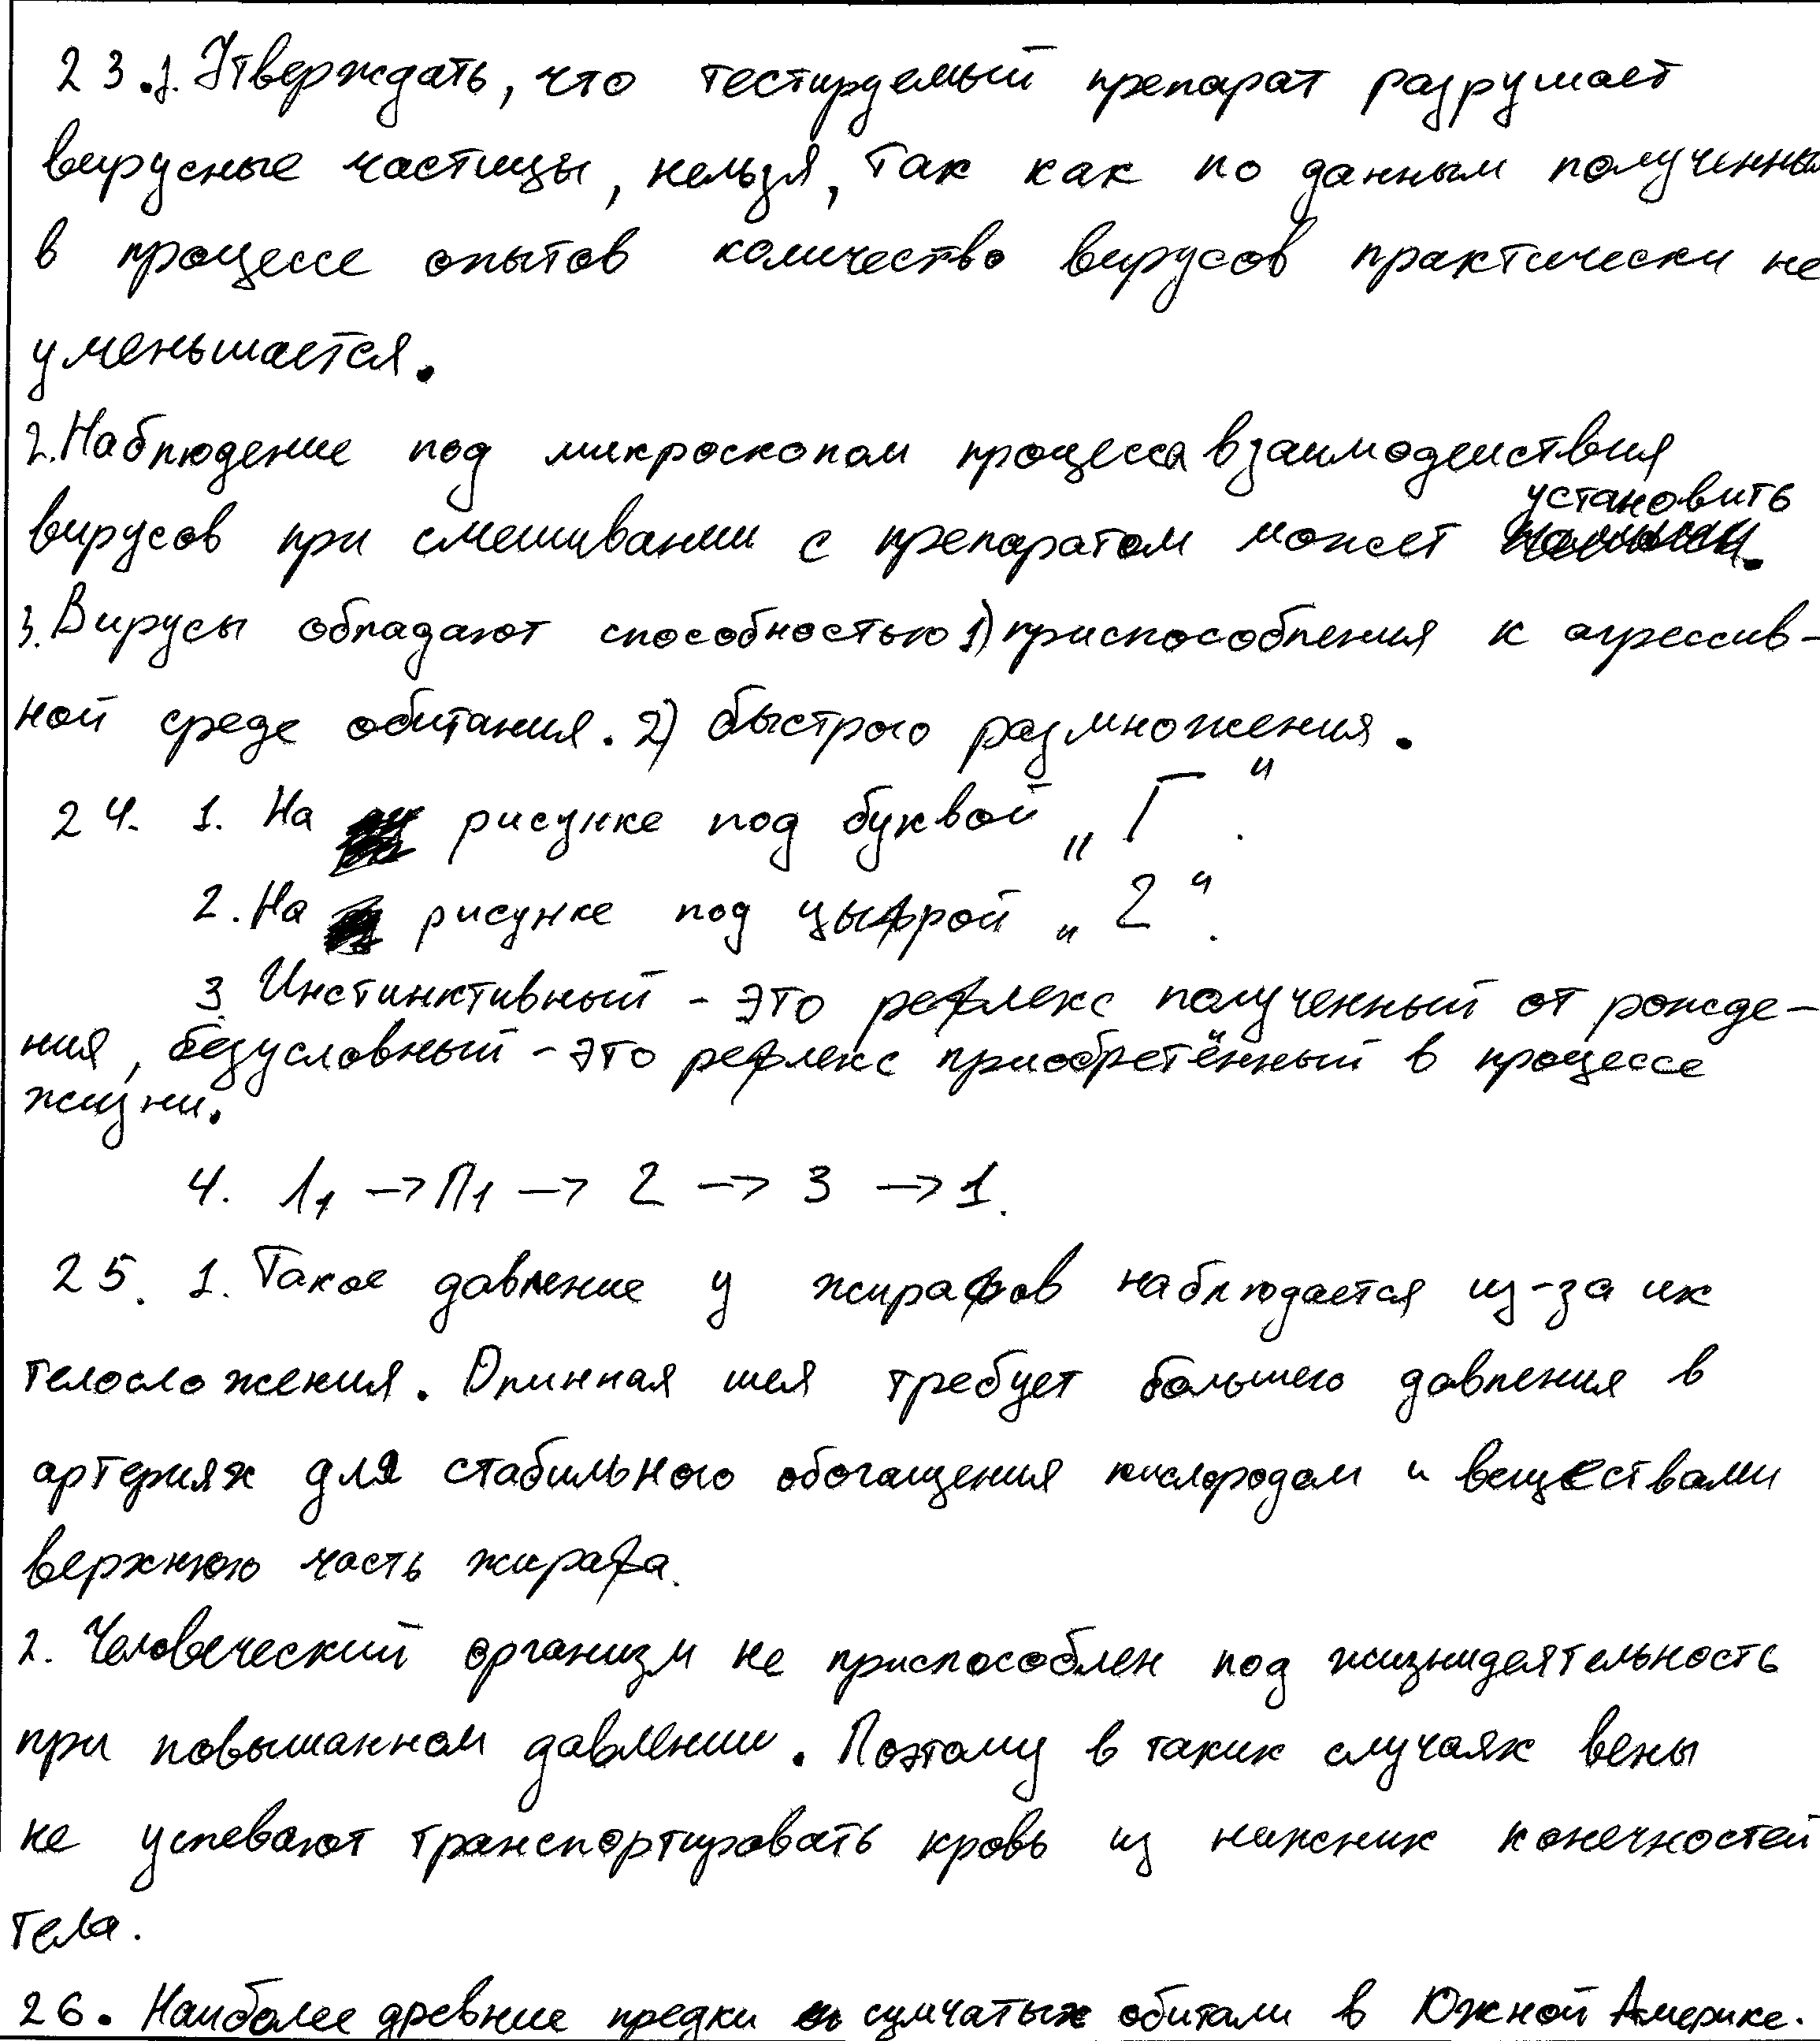 23.1. Утверждать, что тестируемый препарат разрушает
вирусные частицы, нельзя, так как по данным полученны
в процессе опытов количество вирусов практически не
уменьшается.
2. Наблюдение под микроскопом процесса взаимодействия
установить
вирусов при смешивании с препаратом может
3. Вирусы обладают способностью 1) приспособления к агрессив-
ной среде обитания. 2) быстрого размножения.
24. 1. На рисунке под буквой „Г“.
2. На рисунке под цыфрой „2“.
3. Инстинктивный - это рефлекс полученный от рожде-
ния, безусловный - это рефлекс приобретённый в процессе
жизни.
4. Л1 -> П1 -> 2 -> 3 -> 1.
25. 1. Такое давление у жирафов наблюдается из-за их
телосложения. Длинная шея требует большего давления в
артериях для стабильного обогащения кислородом и веществами
верхнюю часть жирафа.
2. Человеческий организм не приспособлен под жизнидеятельность
при повышанном давлении. Поэтому в таких случаях вены
не успевают транспортировать кровь из нижних конечностей
тела.
26. Наиболее древние предки сумчатых обитали в Южной Америке.